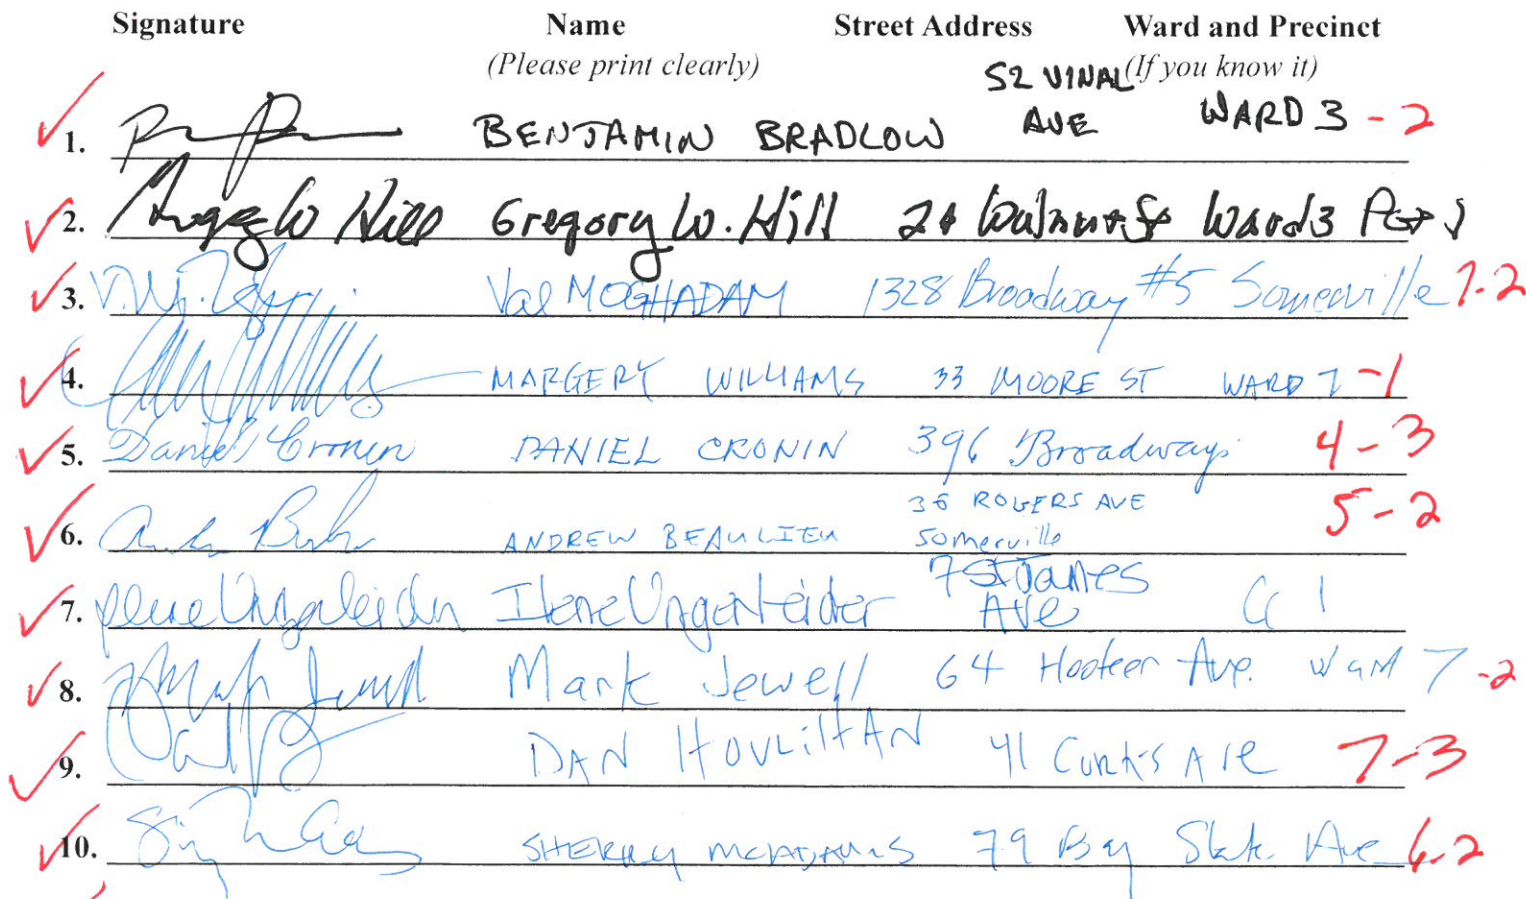 Signature Name Street Address Ward and Precinct
(Please print clearly) (If you know it)
1. BENJAMIN BRADLOW 52 VINAL AVE WARD 3 - 2
2. Gregory W. Hill Gregory W. Hill 24 Walnut St Ward 3 Pct 1
3. Val MOGHADAM 1328 Broadway #5 Somerville 7-2
4. MARGERY WILLIAMS 33 MOORE ST WARD 7 -1
5. Daniel Cronin DANIEL CRONIN 396 Broadway 4-3
6. ANDREW BEAULIEU 36 ROGERS AVE
Somerville 5-2
7. Ilene Ungerleider Ilene Ungerleider 7 St James
Ave 1
8. Mark Jewell Mark Jewell 64 Hooker Ave. Ward 7 -2
9. DAN HOULIHAN 41 Curtis Ave 7-3
10. SHERRY MCADAMS 79 Bay State Ave 6-2